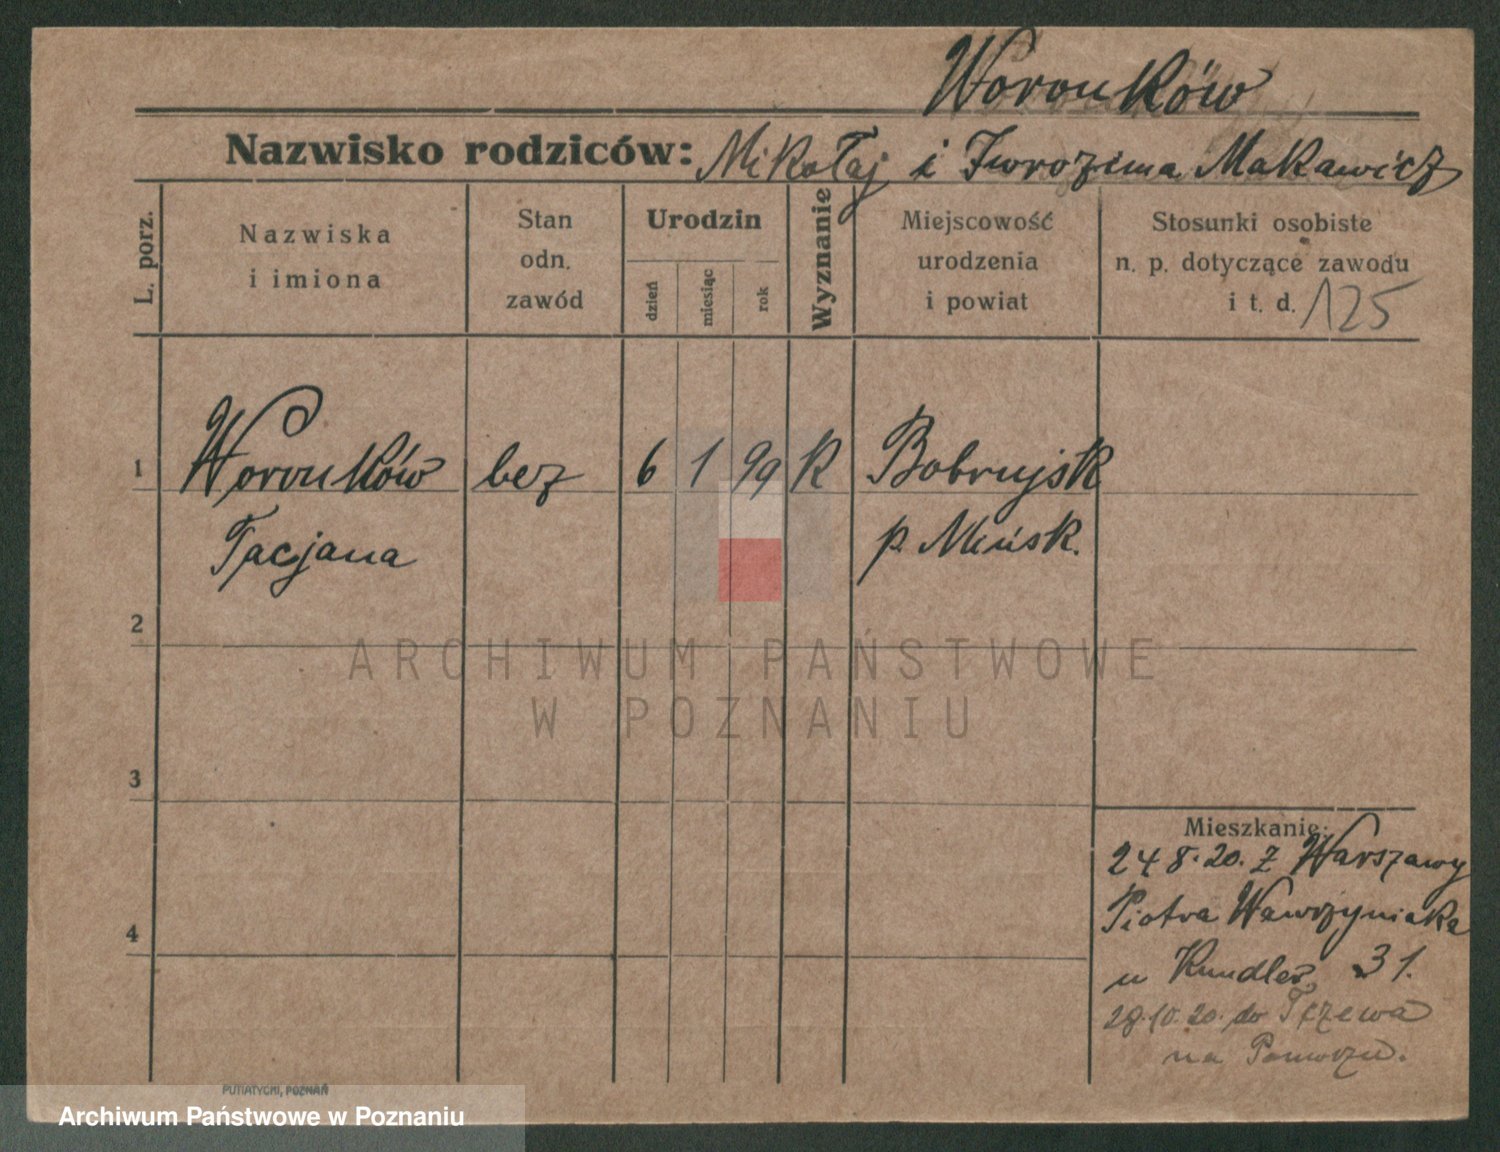 Woronków
Nazwisko rodziców: Mikołaj i Makawicz
L. porz.
Nazwiska
i imiona
Stan
odn.
zawód
Urodzin
dzień
miesiąc
rok
Wyznanie
Miejscowość
urodzenia
i powiat
Stosunki osobiste
n. p. dotyczące zawodu
i t. d. 125
1 Woronków bez 6 1 99 K Bobrujsk
Tacjana p. Mińsk.
2
ARCHIWUM PAŃSTWOWE
W POZNANIU
3
Mieszkanie:
24 8. 20. z Warszawy
Piotra Wawrzyniaka
4
u 31.
28.10. 20. do Tczewa
na Pomorzu.
PUTIATYCKI, POZNAŃ
Archiwum Państwowe w Poznaniu